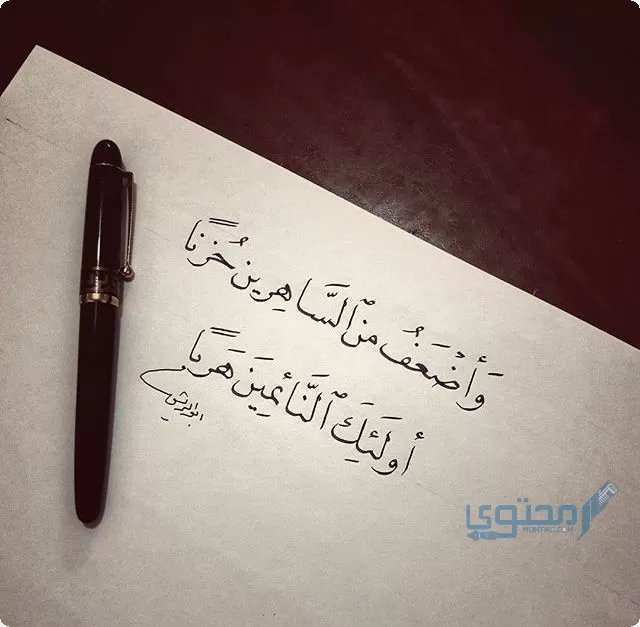 وَأَضْعَفُ مِنَ ٱلسَّاهِرِينَ حُزنًا
أُولَئِكَ ٱلنَّائِمِينَ هَرَبًا
محتوى
MUHTWA.COM